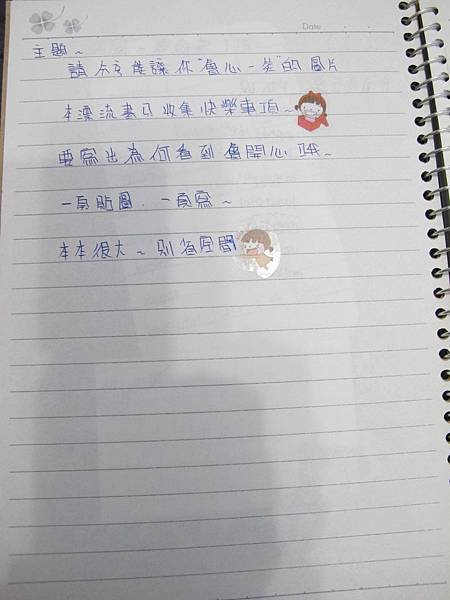 Date
主題~
請分享能讓你"會心一笑"的圖片
本漂流書只收集快樂事項~
要寫出為何看到會開心哦~
一頁貼圖.一頁寫~
本本很大~別省空間